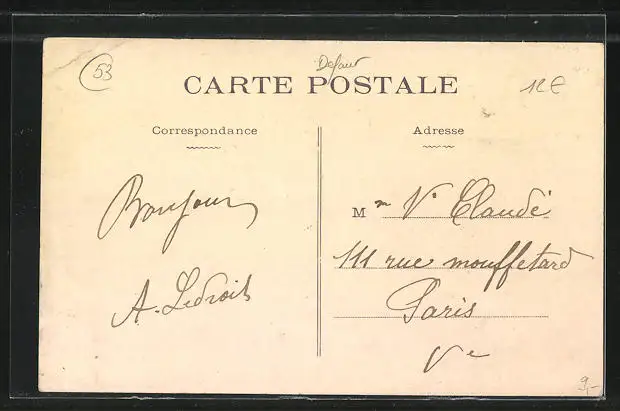 53
Defaut
12€
CARTE POSTALE
Correspondance
Adresse
Bonjour
A. Ledroit
Mme Ve Claudé
111 rue mouffetard
Paris
Ve
9,-